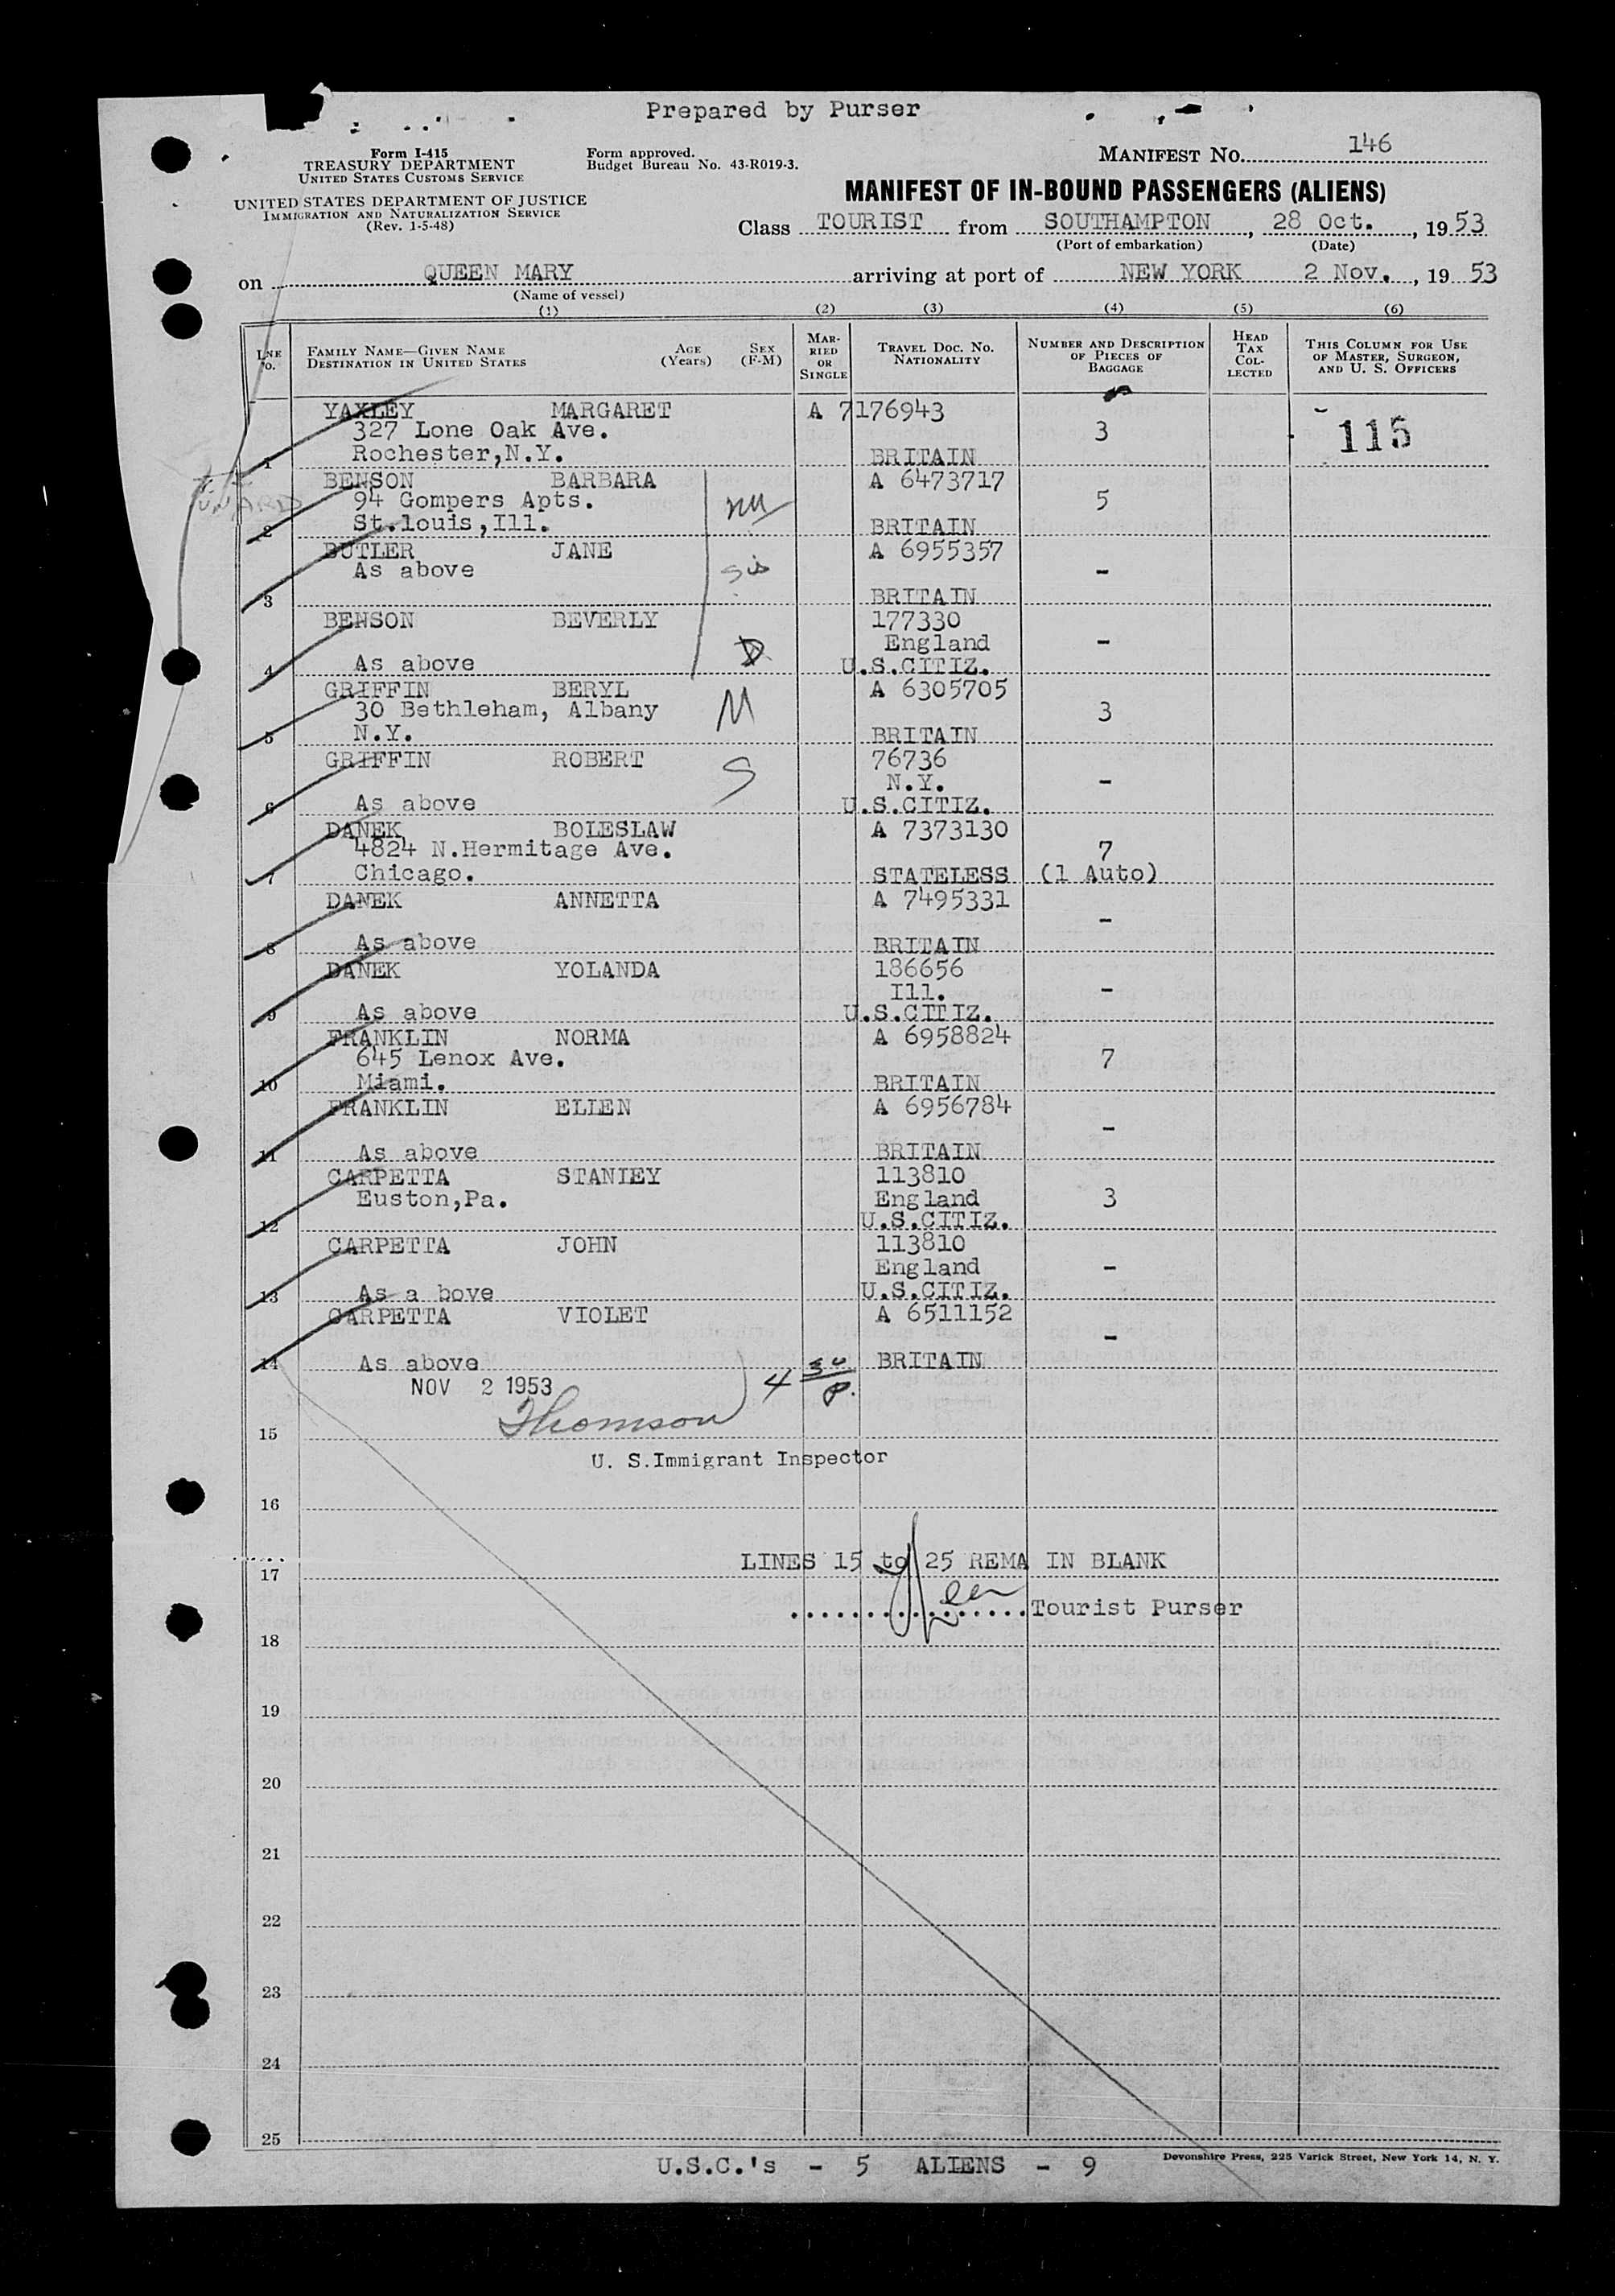 Prepared by Purser
Form I-415
TREASURY DEPARTMENT
UNITED STATES CUSTOMS SERVICE
UNITED STATES DEPARTMENT OF JUSTICE
IMMIGRATION AND NATURALIZATION SERVICE
(Rev. 1-5-48)
Form approved.
Budget Bureau No. 43-R019-3.
MANIFEST NO. 146
MANIFEST OF IN-BOUND PASSENGERS (ALIENS)
Class TOURIST from SOUTHAMPTON, 28 Oct., 1953
(Port of embarkation) (Date)
on QUEEN MARY arriving at port of NEW YORK 2 Nov., 1953
(Name of vessel)
(1) (2) (3) (4) (5) (6)
LNE
o.
FAMILY NAME—GIVEN NAME
DESTINATION IN UNITED STATES
AGE
(Years)
SEX
(F-M)
MAR-
RIED
OR
SINGLE
TRAVEL DOC. NO.
NATIONALITY
NUMBER AND DESCRIPTION
OF PIECES OF
BAGGAGE
HEAD
TAX
COL-
LECTED
THIS COLUMN FOR USE
OF MASTER, SURGEON,
AND U. S. OFFICERS
YAXLEY MARGARET A 7176943
327 Lone Oak Ave. 3 115
1 Rochester,N.Y. BRITAIN
BENSON BARBARA A 6473717
94 Gompers Apts. M 5
2 St.louis,Ill. BRITAIN
BUTLER JANE A 6955357
As above sis -
3 BRITAIN
BENSON BEVERLY 177330
England -
4 As above D U.S.CITIZ.
GRIFFIN BERYL A 6305705
30 Bethleham, Albany M 3
5 N.Y. BRITAIN
GRIFFIN ROBERT S 76736
N.Y. -
6 As above U.S.CITIZ.
DANEK BOLESLAW A 7373130
4824 N.Hermitage Ave. 7
7 Chicago. STATELESS (1 Auto)
DANEK ANNETTA A 7495331
-
8 As above BRITAIN
DANEK YOLANDA 186656
Ill. -
9 As above U.S.CITIZ.
FRANKLIN NORMA A 6958824
645 Lenox Ave. 7
10 Miami. BRITAIN
FRANKLIN ELIEN A 6956784
-
11 As above BRITAIN
CARPETTA STANIEY 113810
Euston,Pa. England 3
12 U.S.CITIZ.
CARPETTA JOHN 113810
England -
13 As a bove U.S.CITIZ.
CARPETTA VIOLET A 6511152
-
14 As above BRITAIN
NOV 2 1953 4
Thomson
15
U. S.Immigrant Inspector
16
LINES 15 to 25 REMA IN BLANK
17
Tourist Purser
18
19
20
21
22
23
24
25
U.S.C.'s - 5 ALIENS - 9
Devonshire Press, 225 Varick Street, New York 14, N. Y.